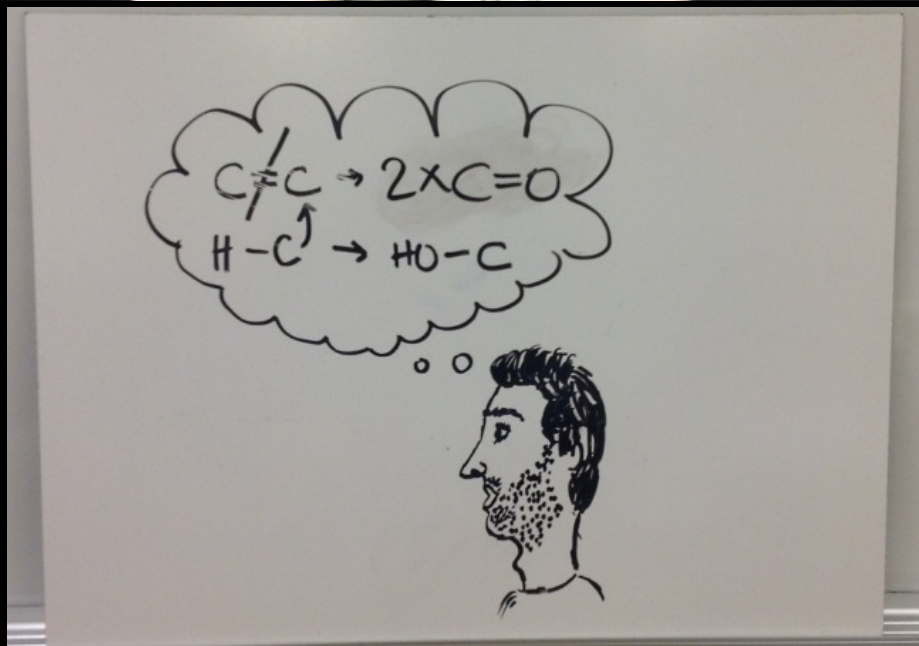 C=C → 2×C=O
H-C → HO-C